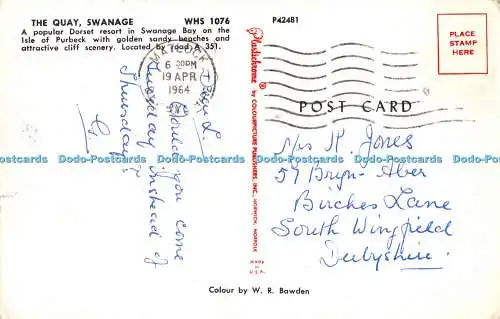 THE QUAY, SWANAGE WHS 1076
A popular Dorset resort in Swanage Bay on the
Isle of Purbeck with golden sandy beaches and
attractive cliff scenery. Located by road A 351.
P42481
PLACE
STAMP
HERE
MATLOCK
6 30PM
19 APR
1964
Dear L.
Would you come
Tuesday instead of
Thursday?
G
Plastichrome ®
by COLOURPICTURE PUBLISHERS, INC., NORWICH, NORFOLK
MADE
IN
U.S.A.
POST CARD
Mrs K. Jones
59 Bryn-Aber
Birches Lane
South Wingfield
Derbyshire.
Colour by W. R. Bawden
Dodo-Postcards Dodo-Postcards Dodo-Postcards Dodo-Postcards Dodo-Postcards